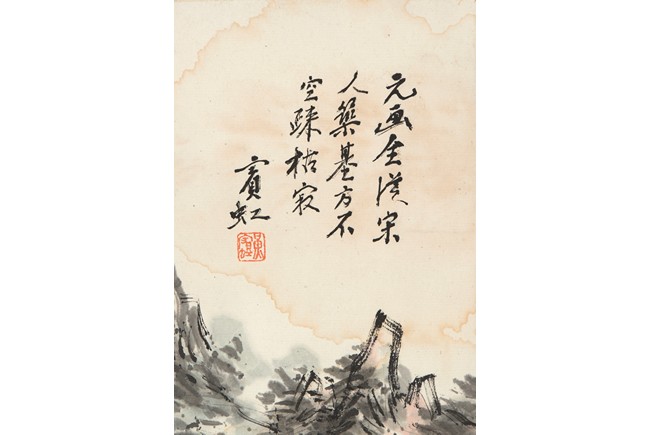 元画全從宋
人築基方不
空疎枯寂
賓虹
黃賓虹